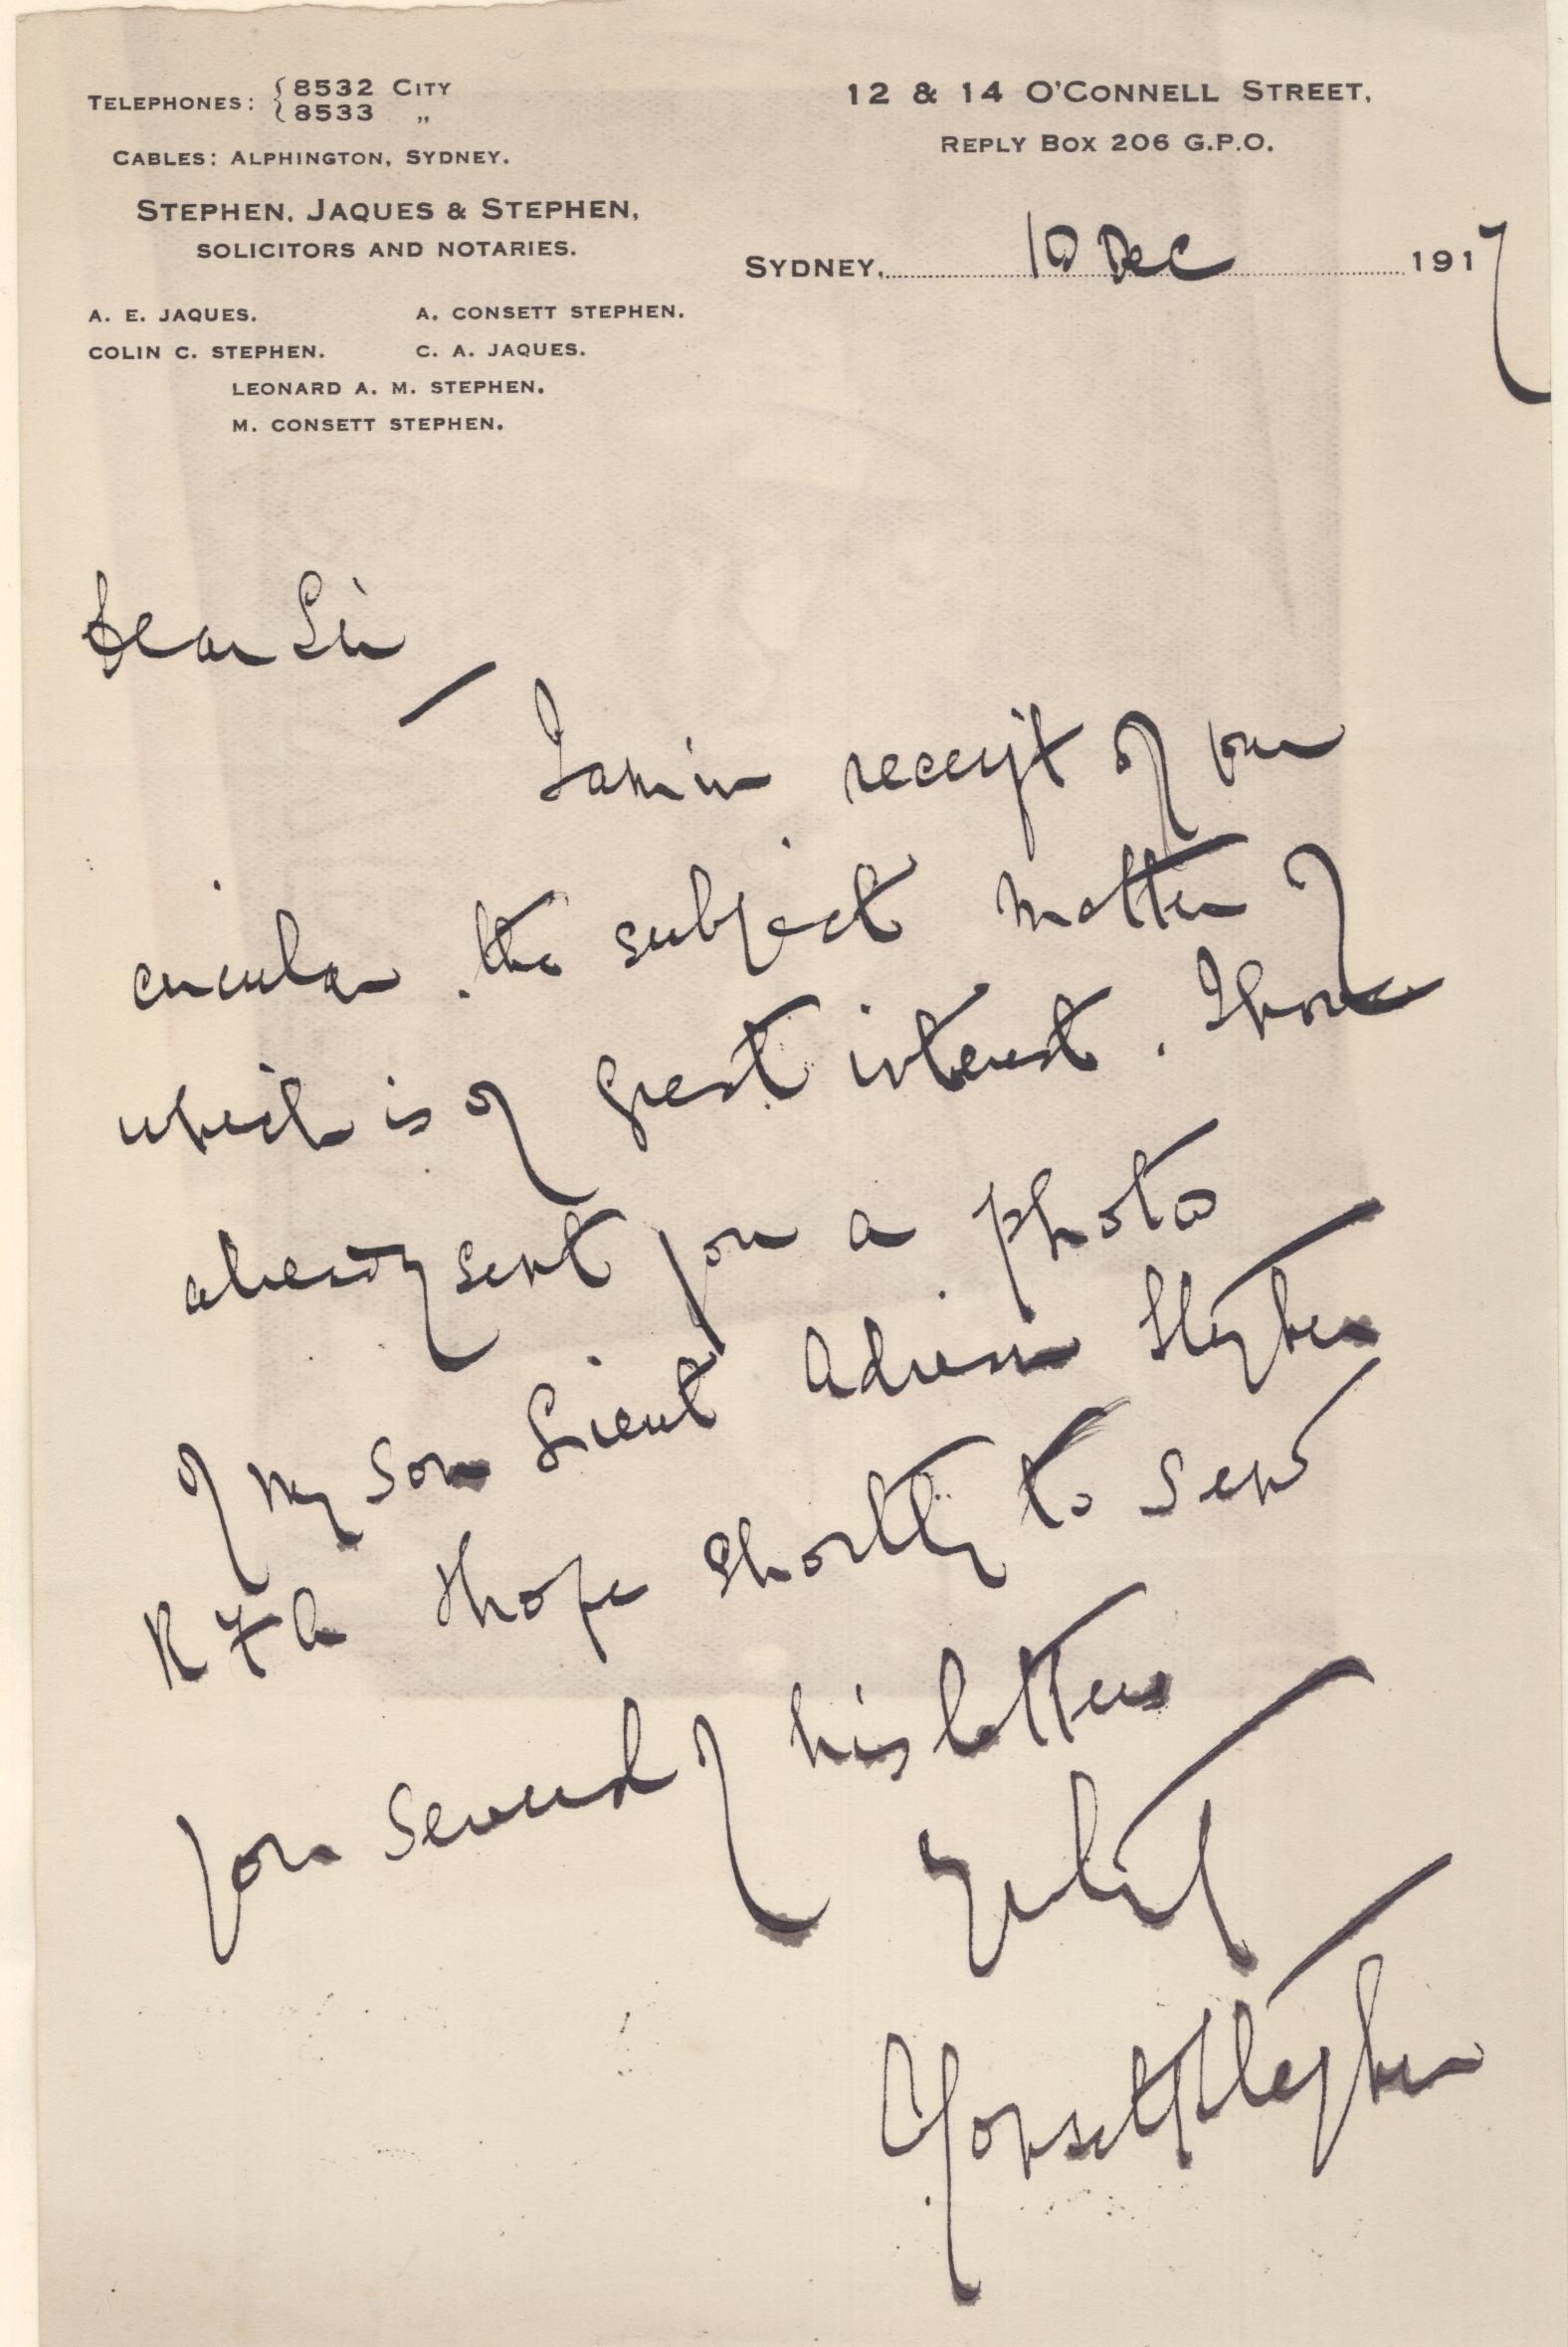 TELEPHONES: { 8532 CITY
{ 8533 „
CABLES: ALPHINGTON, SYDNEY.
STEPHEN, JAQUES & STEPHEN,
SOLICITORS AND NOTARIES.
A. E. JAQUES. A. CONSETT STEPHEN.
COLIN C. STEPHEN. C. A. JAQUES.
LEONARD A. M. STEPHEN.
M. CONSETT STEPHEN.
12 & 14 O'CONNELL STREET,
REPLY BOX 206 G.P.O.
SYDNEY, 10 Dec 1917
Dear Sir
I am in receipt of your
circular. the subject matter of
which is of great interest. I have
already sent you a photo
of my son Lieut Adrian Stephen
R F A & hope shortly to send
you several of his letters
Consett Stephen